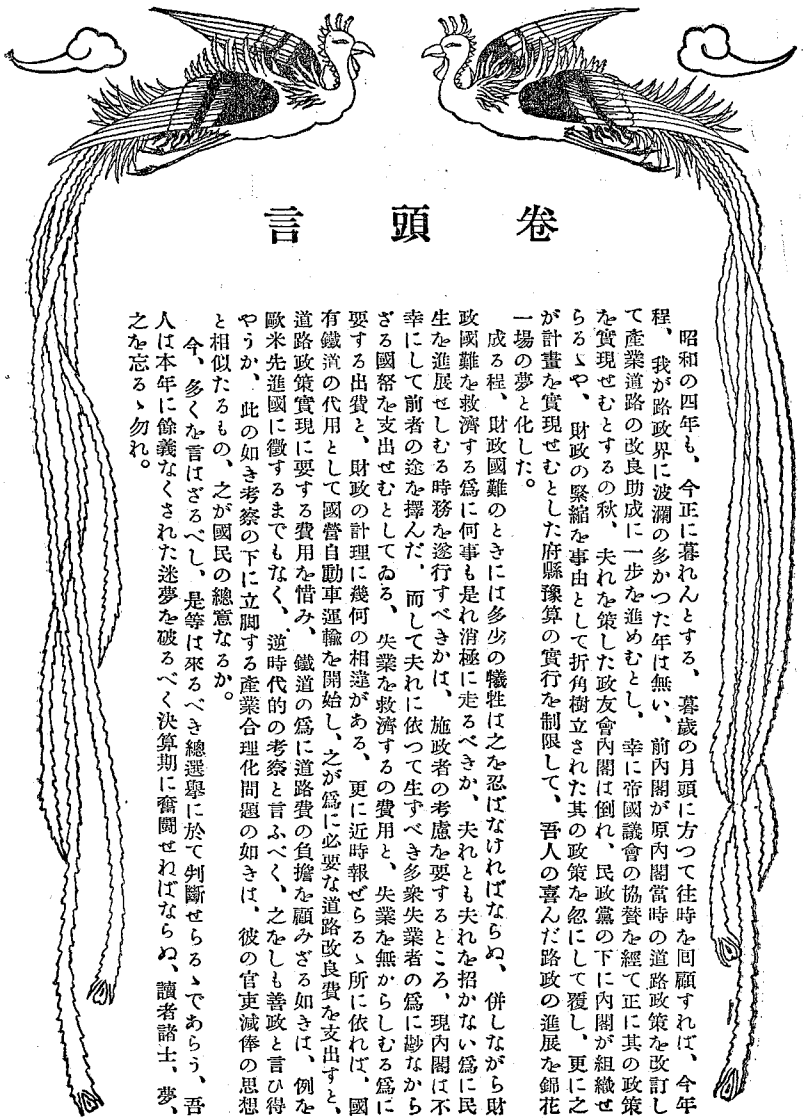 卷頭言
昭和の四年も、今正に暮れんとする、暮歳の月頭に方つて往時を回顧すれば、今年
程、我が路政界に波瀾の多かつた年は無い、前內閣が原內閣當時の道路政策を改訂し
て產業道路の改良助成に一步を進めむとし、幸に帝國議會の協贊を經て正に其の政策
を實現せむとするの秋、夫れを策した政友會內閣は倒れ、民政黨の下に內閣が組織せ
らるゝや、財政の緊縮を事由として折角樹立された其の政策を忽にして覆し、更に之
が計畫を實現せむとした府縣豫算の實行を制限して、吾人の喜んだ路政の進展を錦花
一場の夢と化した。
成る程、財政國難のときには多少の犧牲は之を忍ばなければならぬ、併しながら財
政國難を救濟する爲に何事も是れ消極に走るべきか、夫れとも夫れを招かない爲に民
生を進展せしむる時務を遂行すべきかは、施政者の考慮を要するところ、現內閣は不
幸にして前者の途を擇んだ、而して夫れに依つて生ずべき多衆失業者の爲に尠なから
ざる國帑を支出せむとしてゐる、失業を救濟するの費用と、失業を無からしむる爲に
要する出費と、財政の計理に幾何の相違がある、更に近時報ぜらるゝ所に依れば、國
有鐵道の代用として國營自動車運輸を開始し、之が爲に必要な道路改良費を支出すと、
道路政策實現に要する費用を惜み、鐵道の爲に道路費の負擔を顧みざる如きは、例を
歐米先進國に徵するまでもなく、逆時代的の考察と言ふべく、之をしも善政と言ひ得
やうか、此の如き考察の下に立脚する產業合理化問題の如きは、彼の官吏減俸の思想
と相似たるもの、之が國民の總意なるか。
今、多くを言はざるべし、是等は來るべき總選擧に於て判斷せらるゝであらう、吾
人は本年に餘義なくされた迷夢を破るべく決算期に奮鬪せねばならぬ、讀者諸士、夢、
之を忘るゝ勿れ。